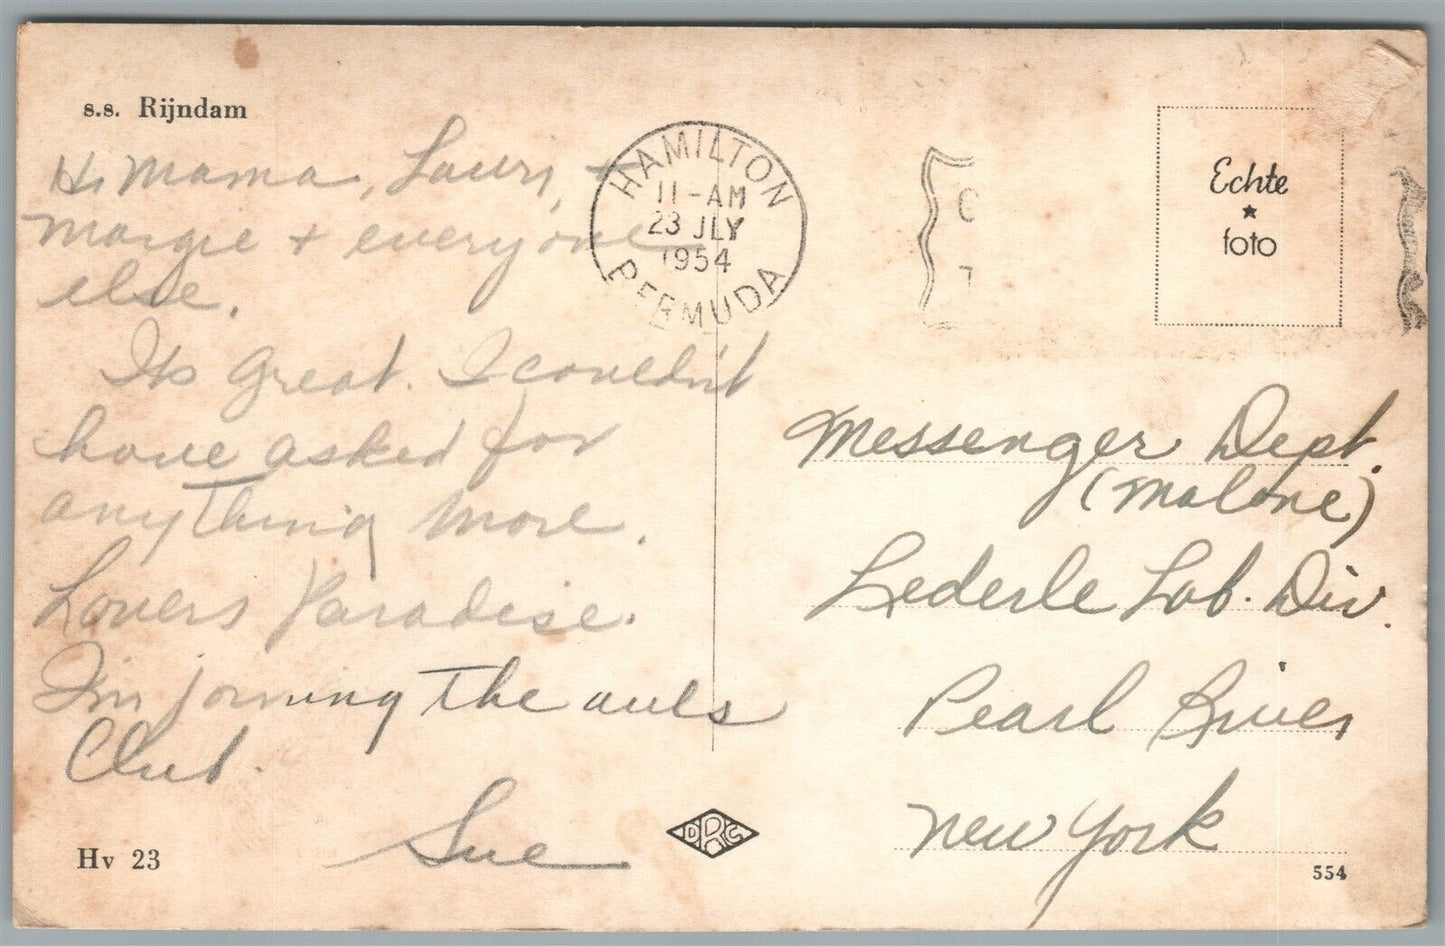 s.s. Rijndam
Hi Mama, Lauri, +
Margie + everyone
else.
Its great. I couldn't
have asked for
anything more.
Lovers Paradise.
I'm joining the auls
Club.
Sue
Hv 23
HAMILTON
11-AM
23 JLY
1954
BERMUDA
Echte
foto
Messenger Dept.
(Malone)
Lederle Lab. Div.
Pearl River
New York
DRC
554